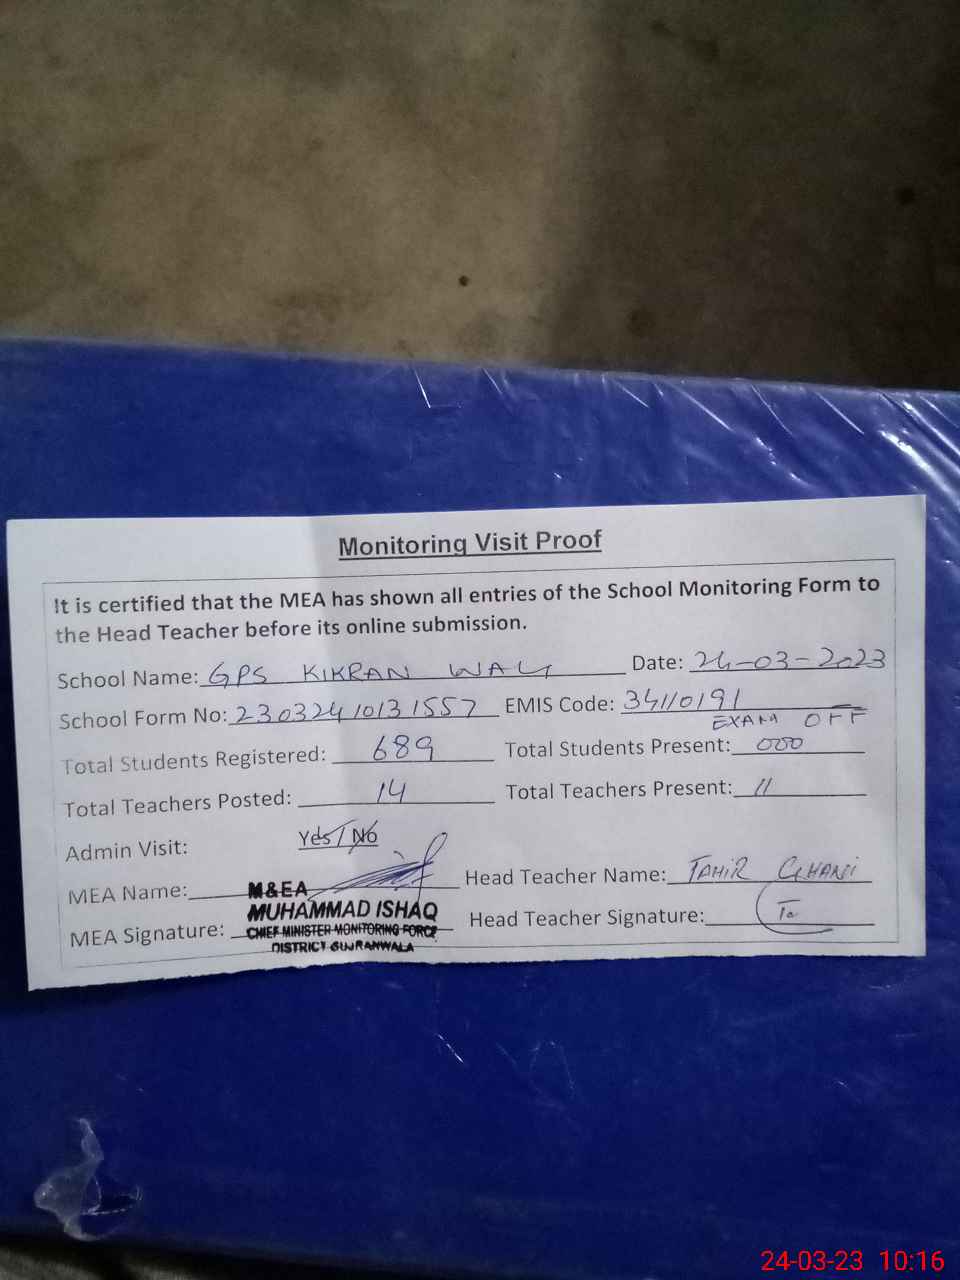 Monitoring Visit Proof
It is certified that the MEA has shown all entries of the School Monitoring Form to
the Head Teacher before its online submission.
School Name: GPS KIKRAN WALI Date: 24-03-2023
School Form No: 23032410131557 EMIS Code: 34110191
EXAM OFF
Total Students Registered: 689 Total Students Present: 000
Total Teachers Posted: 14 Total Teachers Present: 11
Admin Visit: Yes/No
MEA Name: M&EA Head Teacher Name: TAHIR GHANI
MUHAMMAD ISHAQ
MEA Signature: CHIEF MINISTER MONITORING FORCE Head Teacher Signature:
DISTRICT GUJRANWALA
24-03-23 10:16